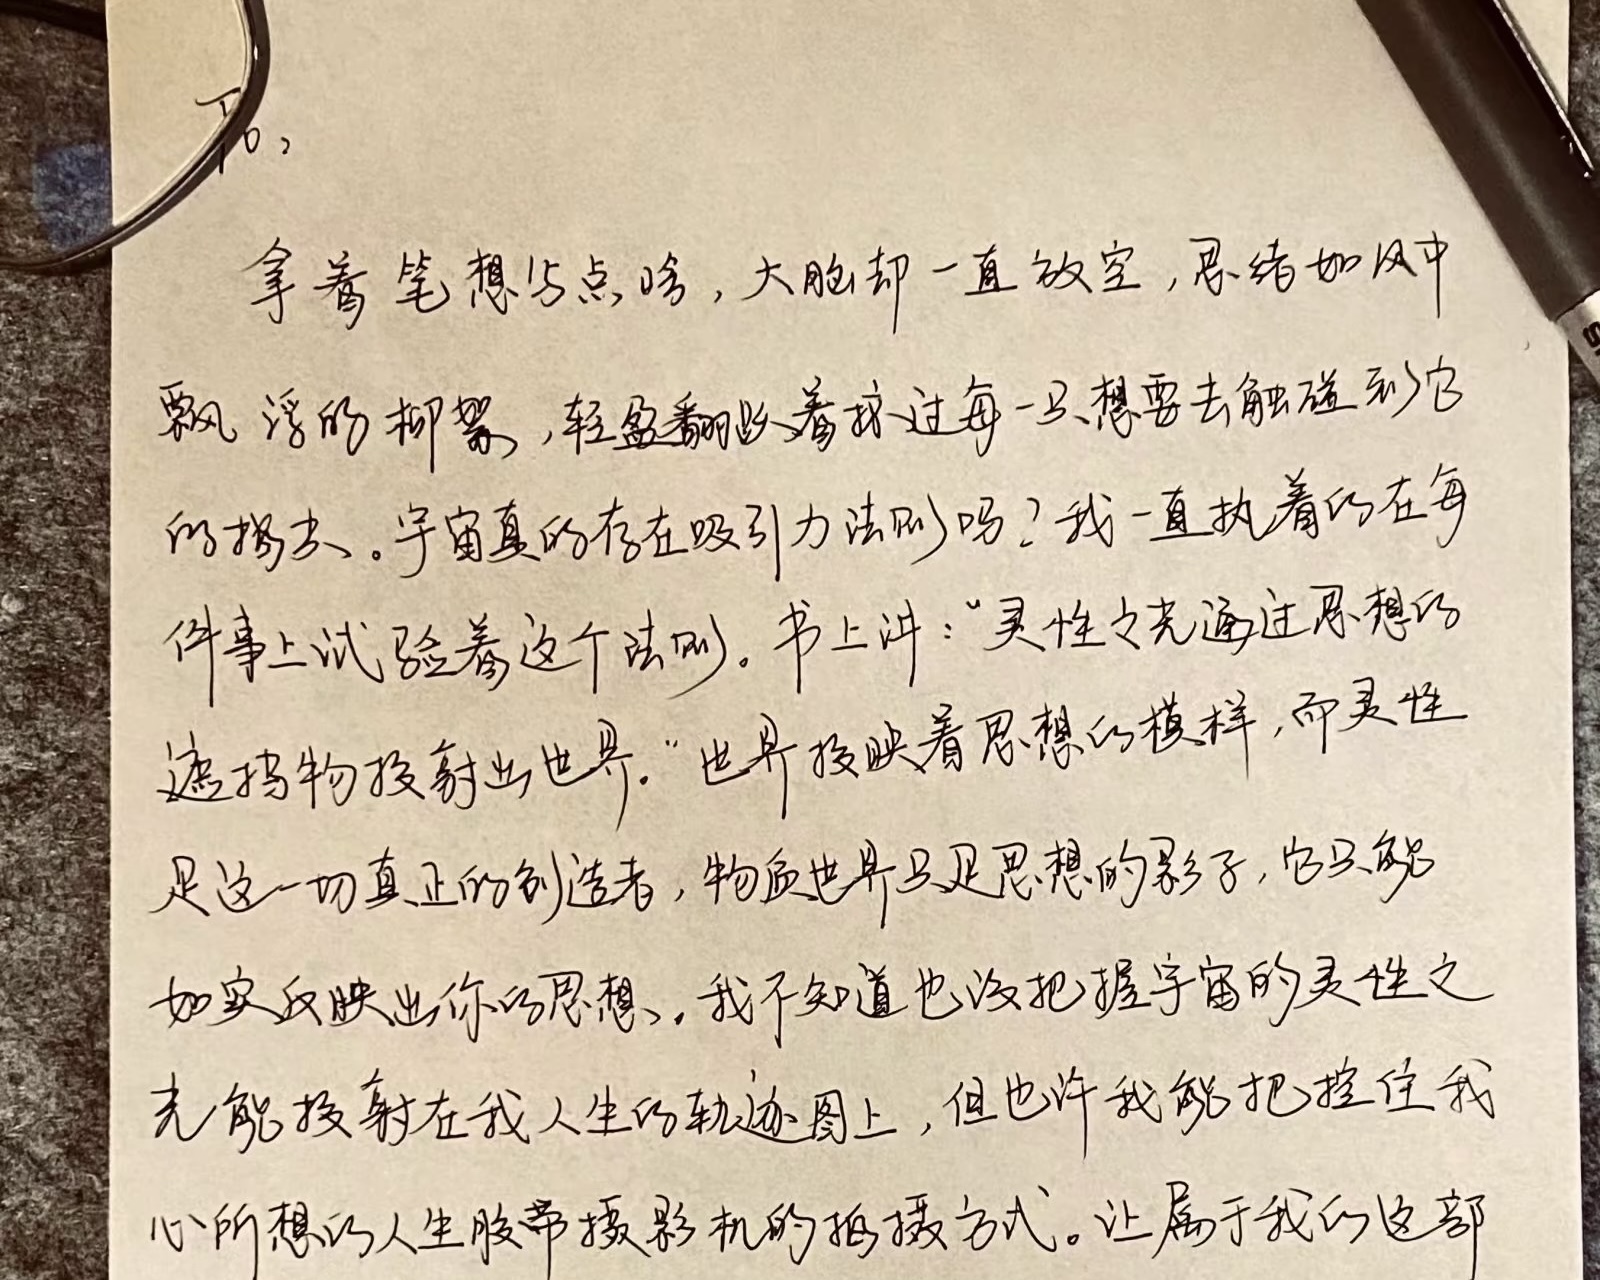 拿着笔想写点啥，大脑却一直放空，思绪如风中
飘浮的柳絮，轻盈翻跃着掠过每一只想要去触碰到它
的。宇宙真的存在吸引力法则吗？我一直执着的在每
件事上试验着这个法则。书上讲：“灵性之光通过思想的
遮挡物投射出世界。”世界投映着思想的模样，而灵性
是这一切真正的创造者，物质世界只是思想的影子，它只能
如实反映出你的思想。我不知道也没把握宇宙的灵性之
光能投射在我人生的轨迹图上，但也许我能把控住我
心所想的人生胶带摄影机的拍摄方式。让属于我的这部